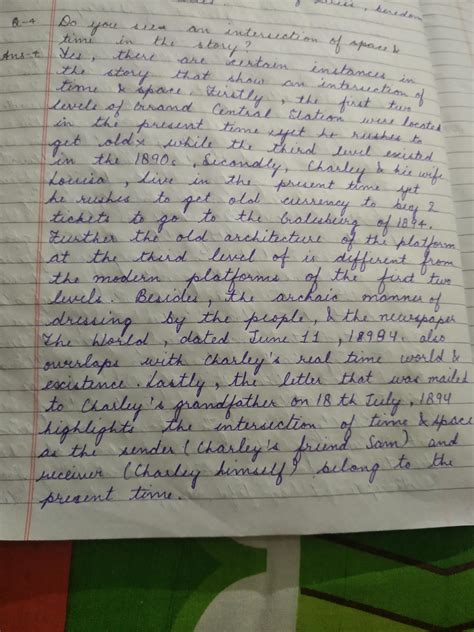 boredom
Q-4 Do you see an intersection of space &
time in the story?
Ans-4 Yes, there are certain instances in
the story that show an intersection of
time & space. Firstly, the first two
levels of Grand Central Station were located
in the present time yet he rushes to
get old while the third level existed
in the 1890s. Secondly, Charley & his wife
Louisa, live in the present time yet
he rushes to get old currency to buy 2
tickets to go to the Galesburg of 1894.
Further the old architecture of the platform
at the third level of is different from
the modern platforms of the first two
levels. Besides, the archaic manner of
dressing by the people, & the newspaper
The World, dated June 11, 18994 also
overlaps with Charley's real time world &
existence. Lastly, the letter that was mailed
to Charley's grandfather on 18 th July, 1894
highlights the intersection of time & space
as the sender (Charley's friend Sam) and
receiver (Charley himself) belong to the
present time.